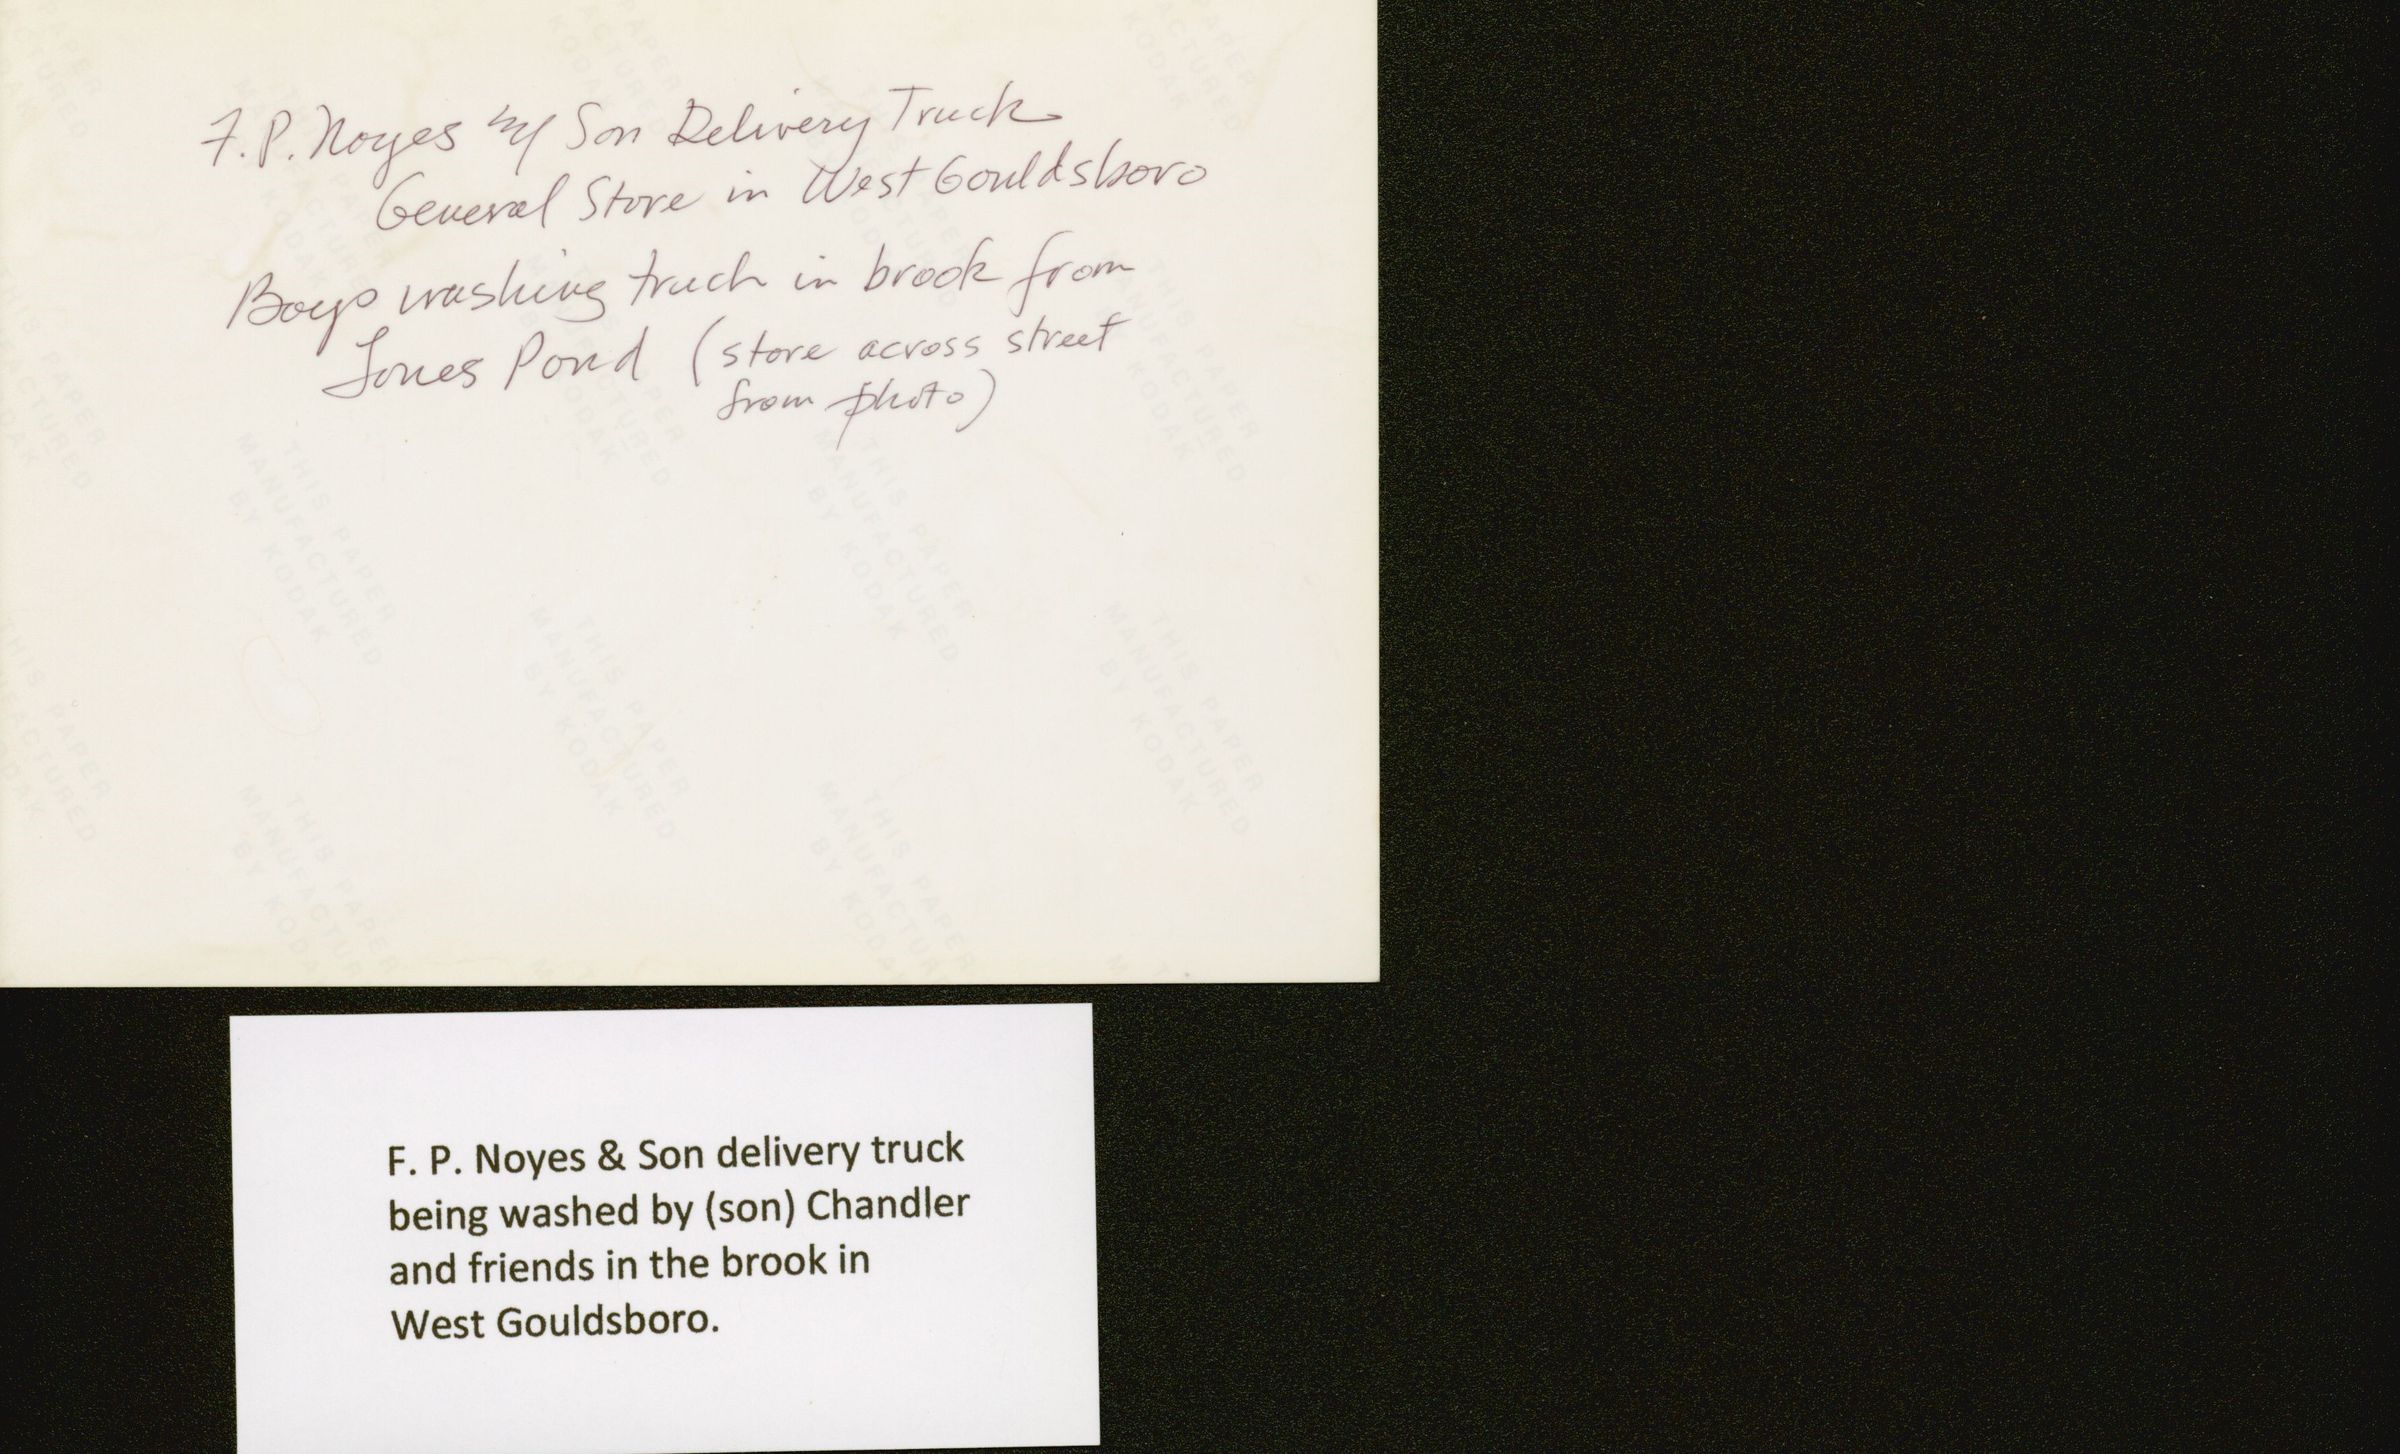 F. P. Noyes w/ Son Delivery Truck
General Store in West Gouldsboro
Boys washing truck in brook from
Jones Pond (store across street
from photo)
THIS PAPER
MANUFACTURED
BY KODAK
F. P. Noyes & Son delivery truck
being washed by (son) Chandler
and friends in the brook in
West Gouldsboro.